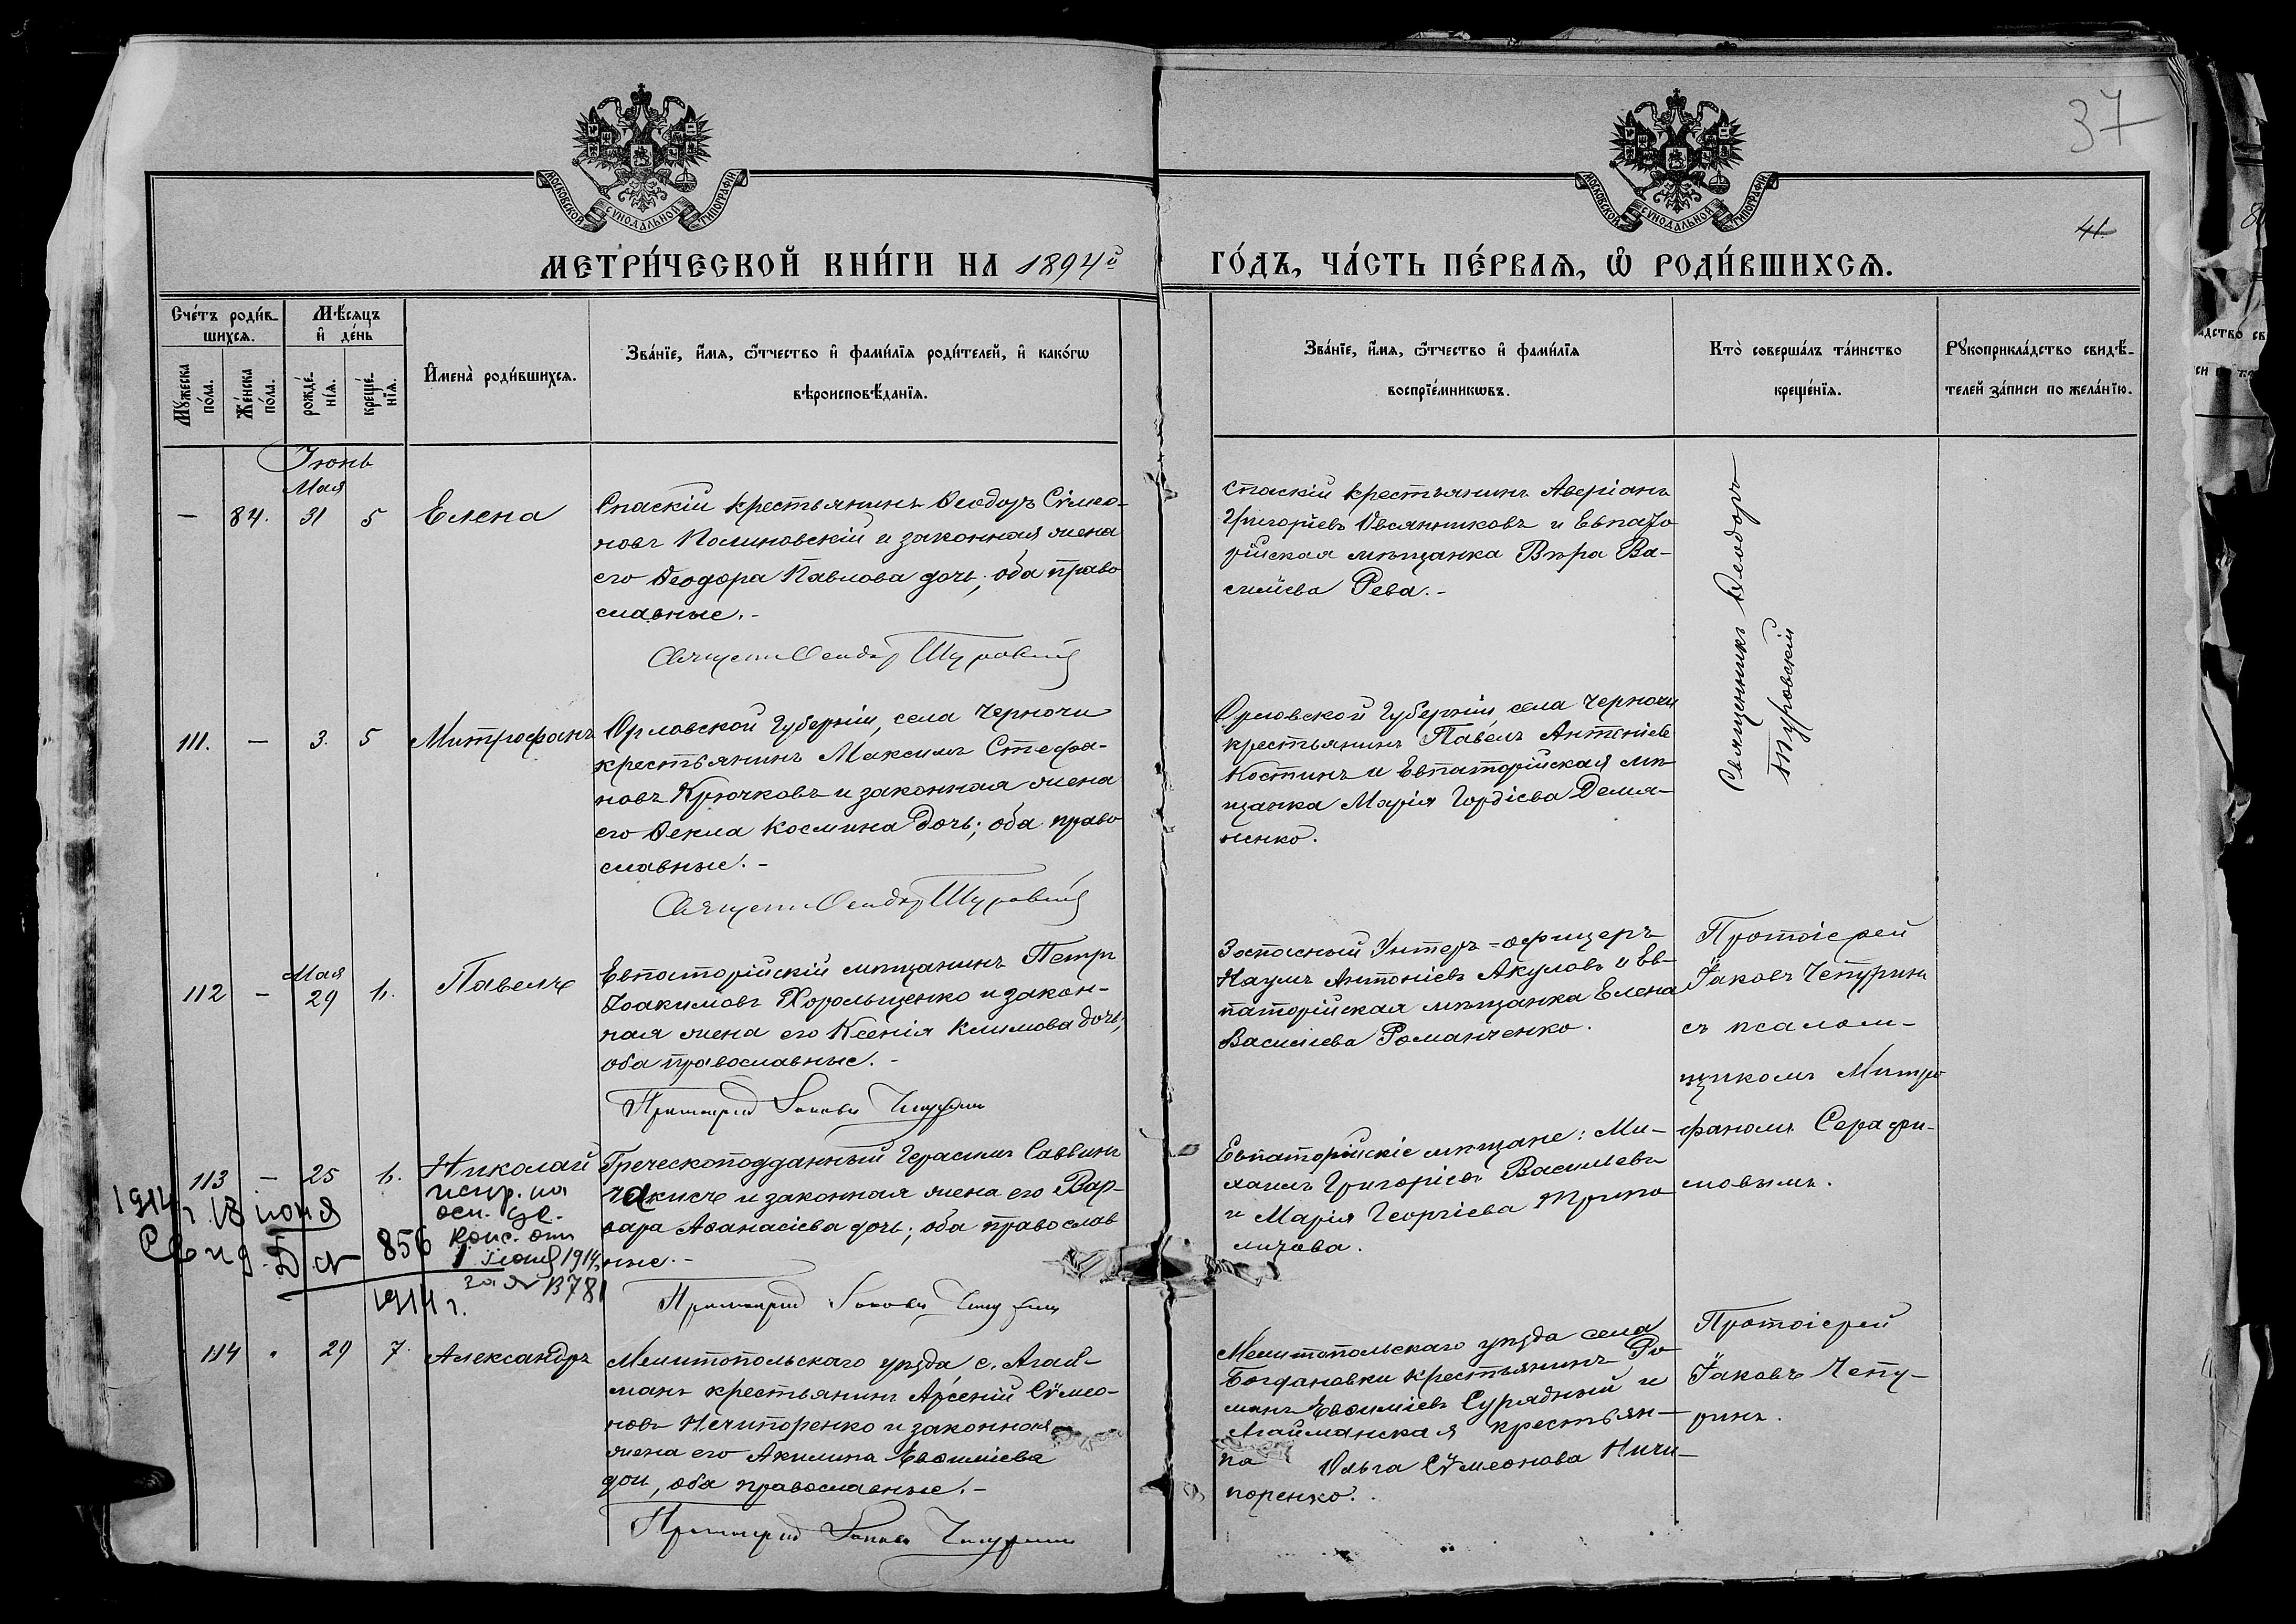 37
41.
МОСКОВСКОЙ СѴНОДАЛЬНОЙ ТИПОГРАФІИ
МОСКОВСКОЙ СѴНОДАЛЬНОЙ ТИПОГРАФІИ
МЕТРИ́ЧЕСКОЙ КНИ́ГИ НА 1894й
ГО́ДЪ, ЧА́СТЬ ПЕ́РВАЯ, Ѡ҆ РОДИ́ВШИХСЯ.
Сче́тъ роди́в-
шихся.
Мѣ́сяцъ
и҆ де́нь
Мꙋ́жеска по́ла.
Же́нска по́ла.
рожде́-нїя.
креще́-нїя.
И҆мена̀ роди́вшихся.
Зва́нїе, и҆́мя, ѻ҆́тчество и҆ фами́лїя роди́телей, и҆ како́гѡ
вѣроисповѣ́данїя.
Зва́нїе, и҆́мя, ѻ҆́тчество и҆ фами́лїя
воспрїе́мникѡвъ.
Кто̀ соверша́лъ та́инство
креще́нїя.
Рꙋкоприкла́дство свидѣ́-
телей за́писи по жела́нїю.
Іюнь
Мая
— 84. 31 5 Елена
Спаскій крестьянинъ Ѳеодоръ Сѵмео-
новъ Полиновскій и законная жена
его Ѳеодора Павлова дочь; оба право
славные.-
Священ Ѳеодор Туровскій
Спаскій крестьянинъ Аверіанъ
Григоріевъ Овсянниковъ и Евпато
рійская мѣщанка Вѣра Ва-
силіева Рева.-
Священникъ Ѳеодоръ
Туровскій
111. — 3. 5 Митрофанъ
Орловской Губерніи, села Черночи
крестьянинъ Максимъ Стефа-
новъ Крючковъ и законная жена
его Ѳекла Космина дочь; оба право
славные.-
Священ Ѳеодор Туровскій
Орловской Губерніи села Черночи
крестьянинъ Павелъ Антоніевъ
Костинъ и Евпаторійская мѣ
щанка Марія Гордіева Демя-
ненко.
Мая
112 — 29 1. Павелъ
Евпаторійскій мѣщанинъ Петръ
Іоакимовъ Хорольщенко и закон-
ная жена его Ксенія Климова дочь;
оба православные.-
Протоіерей Іаковъ Чепуринъ
Запасный Унтеръ-офицеръ
Наумъ Антоніевъ Акуловъ и Ев-
паторійская мѣщанка Елена
Василіева Романченко.
Протоіерей
Іаковъ Чепуринъ
съ псалом-
щикомъ Митро
фаномъ Серафи-
мовымъ.
113 — 25 1. Николай
испр. на
осн. ук.
конс. отъ
1 юня 1914
за № 13781
1914 г. 13 юня
Свид. Д. № 856
1914 г.
Греческоподданный Герасимъ Саввинъ
и законная жена его Вар-
вара Аѳанасіева дочь; оба православ
ные.-
Протоіерей Іаковъ Чепуринъ
Евпаторійскіе мѣщане: Ми-
хаилъ Григоріевъ Васильевъ
и Марія Георгіева
114 " 29 7. Александръ
Мелитопольскаго уѣзда с. Агай-
манъ крестьянинъ Арсеній Сѵмео-
новъ Нечипоренко и законная
жена его Акилина Евѳиміева
дочь, оба православные.-
Протоіерей Іаковъ Чепуринъ
Мелитопольскаго уѣзда села
Богдановки крестьянинъ Ро
манъ Евѳиміевъ Сурядный и
Агайманская крестьян-
ка Ольга Сѵмеонова Ничи-
поренко.
Протоіерей
Іаковъ Чепу-
ринъ.